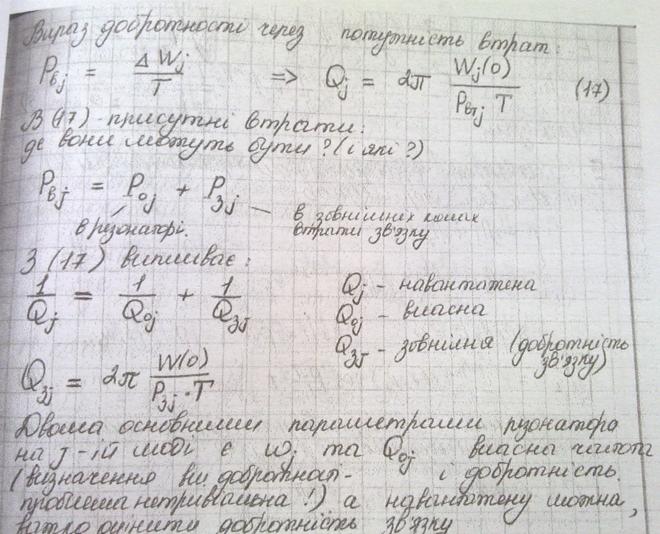 Вираз добротності через потужність втрат:
P_вj = ΔW_j / T => Q_j = 2π W_j(0) / P_втj T (17)
В (17) - присутні втрати:
де вони можуть бути? (і які?)
P_вj = P_0j + P_зj — в зовнішніх колах
в резонаторі. втрати зв'язку
З (17) випливає:
1/Q_j = 1/Q_0j + 1/Q_зj
Q_j - навантажена
Q_0j - власна
Q_зj - зовнішня (добротність
зв'язку)
Q_зj = 2π W(0) / P_зj · T
Двома основними параметрами рзонатора
на j-ій моді є ω_j та Q_0j власна частота
(визначення вл. добротності- і добротність.
проблема нетривіальна!) а навантажену можна,
оцінити добротність зв'язку